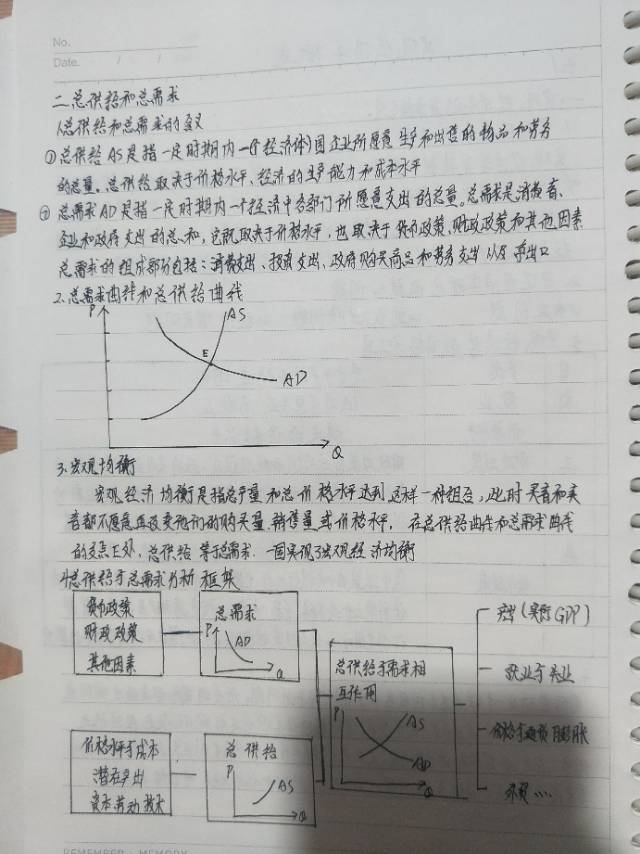 No.
Date.
二、总供给和总需求
1、总供给和总需求的含义
①总供给AS是指一定时期内一个(经济体)国企业所愿意生产和出售的物品和劳务
的总量。总供给取决于价格水平、经济的生产能力和成本水平
②总需求AD是指一定时期内一个经济中各部门所愿意支出的总量。总需求是消费者、
企业和政府支出的总和,它既取决于价格水平,也取决于货币政策、财政政策和其他因素
总需求的组成部分包括:消费支出、投资支出、政府购买商品和劳务支出以及净出口
2、总需求曲线和总供给曲线
P
AS
E
AD
Q
3、宏观均衡
宏观经济均衡是指总产量和总价格水平达到这样一种组合,此时买者和卖
者都不愿意再改变他们的购买量、销售量或价格水平。在总供给曲线和总需求曲线
的交点E处,总供给等于总需求.一国实现了宏观经济均衡
4、总供给与总需求分析框架
货币政策
财政政策
其他因素
总需求
P
AD
Q
价格水平与成本
潜在产出
资本劳动技术
总供给
P
AS
Q
总供给与需求相
互作用
P
AS
AD
Q
产出(实际GDP)
就业与失业
价格与通货膨胀
外贸…
REMEMBER · MEMORY